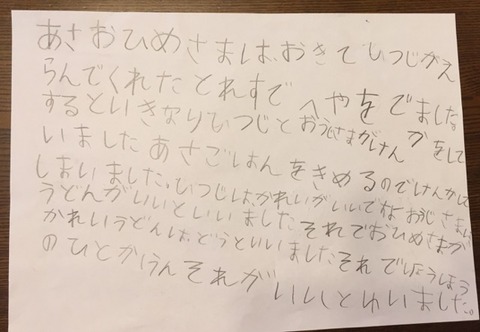 あさおひめさまは、おきてひつじがえ
らんでくれたとれすで へやをでました。
するといきなりひつじとおうじさまがけんかをして
いましたあさごはんをきめるのでけんかして
しまいました。ひつじは、かれいがいいでなおおじさまは
うどんがいいといいましたそれでおひめさまが
かれいうどんは、どうといいましたそれでりょうほう
のひとか それがいいとゆいました。